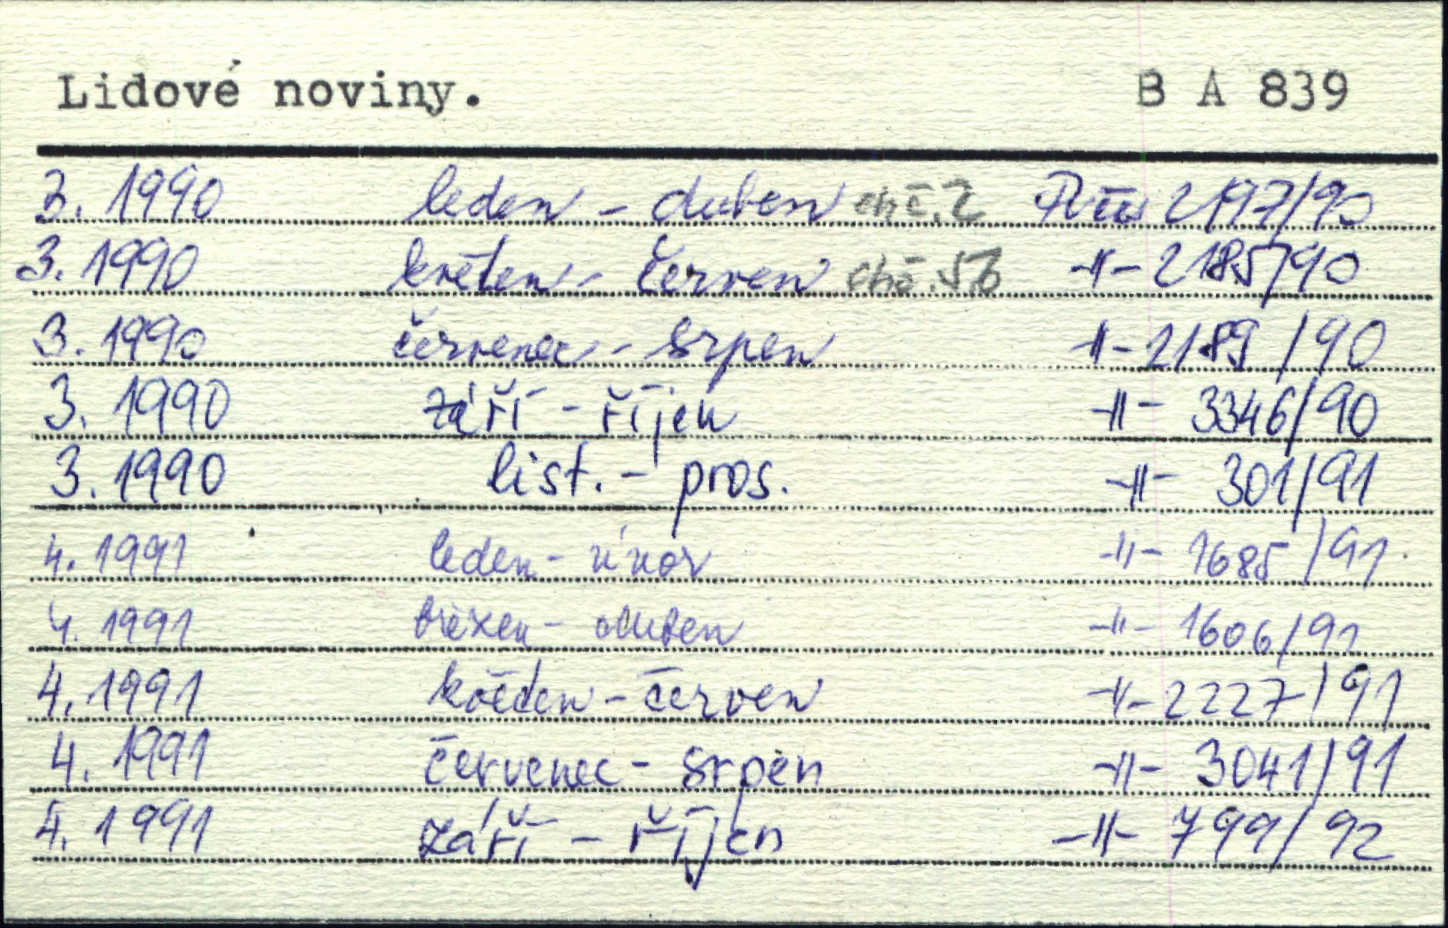 Lidové noviny. B A 839
3. 1990 leden - duben chč. 2 2197/90
3. 1990 květen - červen chč. 56 -"- 2185/90
3. 1990 červenec - srpen -"- 2189/90
3. 1990 září - říjen -"- 3346/90
3. 1990 list. - pros. -"- 301/91
4. 1991 leden - únor -"- 1685/91
4. 1991 březen - duben -"- 1606/91
4. 1991 květen - červen -"- 2227/91
4. 1991 červenec - srpen -"- 3041/91
4. 1991 září - říjen -"- 799/92